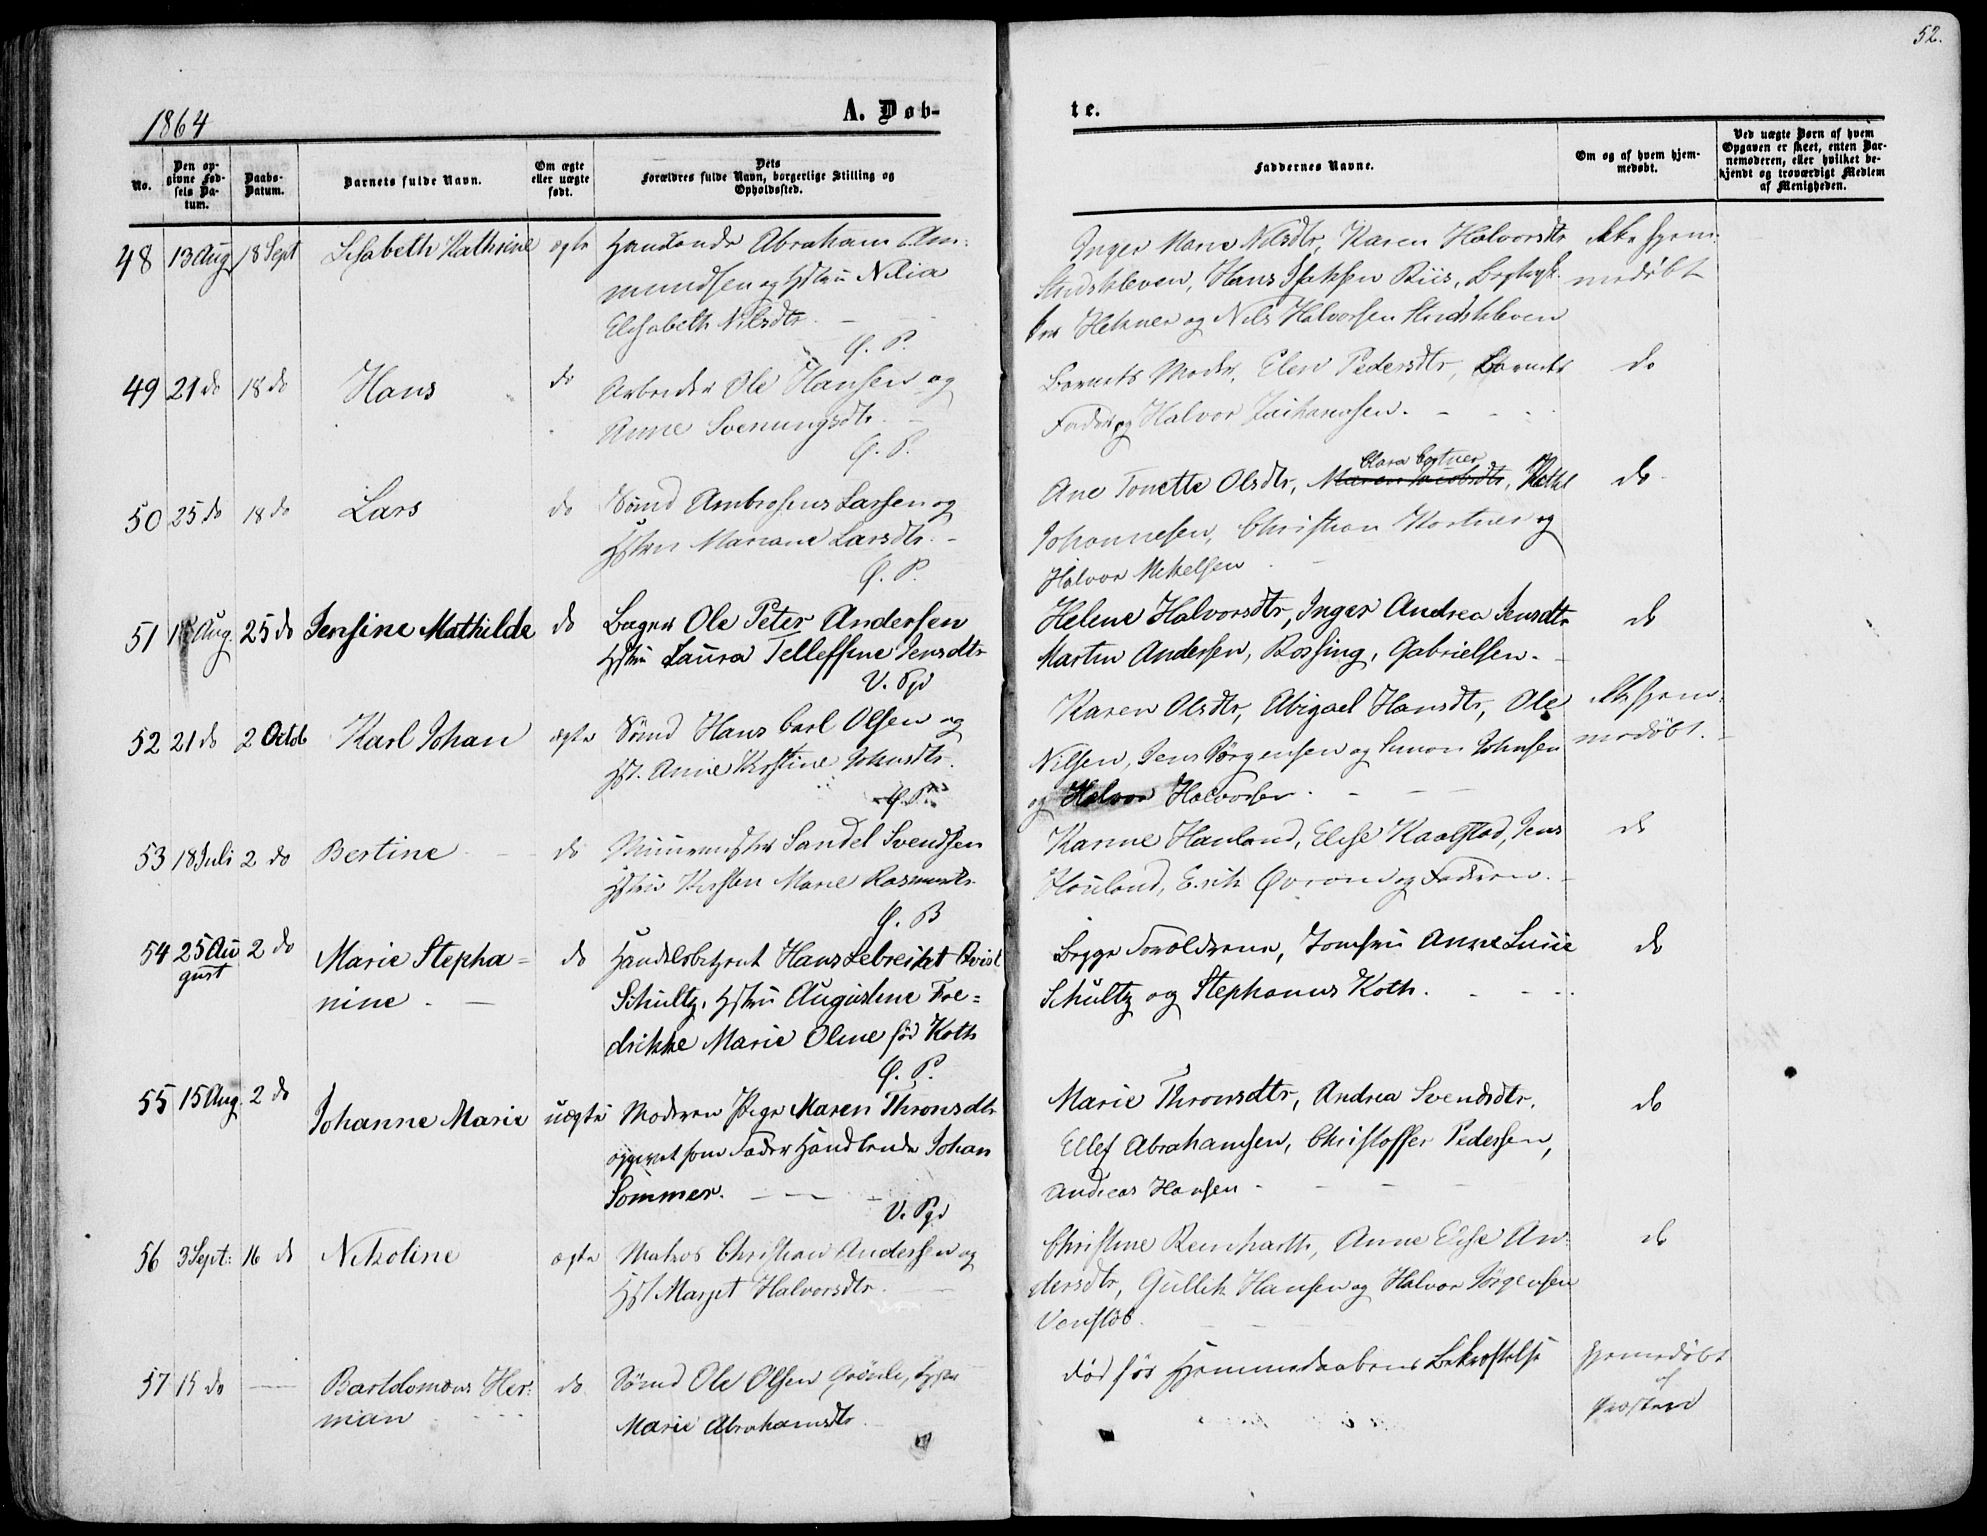 52.
1864
A. Døb-
te.
No.
Den op-
givne Fød-
sels Da-
tum.
Daabs-
Datum.
Barnets fulde Navn.
Om ægte
eller uægte
født.
Dets
Forældres fulde Navn, borgerlige Stilling og
Opholdssted.
Faddernes Navne.
Om og af hvem hjem-
medøbt.
Ved uægte Børn af hvem
Opgaven er skeet, enten Bar-
nemoderen, eller hvilket be-
kjendt og troværdigt Medlem
af Menigheden.
48 13 Aug 18 Sept Elisabeth Kathrine ægte Handlende Abraham Am-
mundsen og Hstru Nilia
Elisabeth Nilsdtr
G. P.
Inger Marie Nilsdtr, Karen Halvorsdtr ikke hjem-
Hans Isaksen Riis, medøbt
og Nils Halvorsen
49 21 do 18 do Hans do Arbeider Ole Hansen og
Anne Svenungsdtr
G. P.
Barnets Moder, Elen Pedersdtr, Barnets do
Fader og Halvor Zachariasen.
50 25 do 18 do Lars do Sømd Ambrosius Larsen og
Hstru Mariane Larsdtr.
G. P.
Clara Cortner
Ane Tonette Olsdtr, Maren Jacobsdtr, do
Johannesen, Christian Kortner og
Halvor Mekelsen
51 Aug. 25 do Jensine Mathilde do Bager Ole Peter Andersen
Hstru Laura Telleffine Jensdtr
V. Pgd
Helene Halvorsdtr, Inger Andrea Jensdtr do
Martin Andersen, Rossing, Gabrielsen.
52 21 do 2 Octob Karl Johan ægte Sømd Hans Carl Olsen og
Hst. Anne Kirstine Johnsdtr.
G. P.
Karen Olsdtr, Abigael Hansdtr, Ole ikke hjem-
Nilsen, Jens Jørgensen og Simon Johnsen medøbt.
og Halvor Halvorsen
53 18 Juli 2 do Bertine do Muurmester Sandel Svendsen
Hstru Kirsten Marie Rasmusdtr
G. B
Karine Hauland, Elise Kaalstad, Jens do
Hauland, Erik og Faderen.
54 25 Au 2 do Marie Stepha= do Handelsbetjent Hans Lebreikt Qvist
gust
nine Schultz, Hstru Augustine Fre=
drikke Marie Oline fød Koth
G. P.
Begge Forældrene, Jomfru Anne Lucie do
Schultz og Stephanus Koth.
55 15 Aug. 2 do Johanne Marie uægte Moderen Pige Maren Thronsdtr
opgivet som Fader Handlende Johan
Sommer.
V. Pgd
Marie Thronsdtr, Andrea Svendsdtr. do
Ellef Abrahamsen, Christoffer Pedersen,
Andreas Hansen
56 3 Sept: 16 do Nikoline ægte Matros Christian Andersen og
Hst Margit Halvorsdtr.
Christine Reinhardt, Anne Elise An- do
dersdtr, Gullik Hansen og Halvor Jørgensen
Venstøb.
57 15 do — Bartolomæus Her- do Sømd Ole Olsen
man Marie Abrahamsdtr
død før Hjemmedaabens Bekræftelse hjemmedøbt
af
Præsten